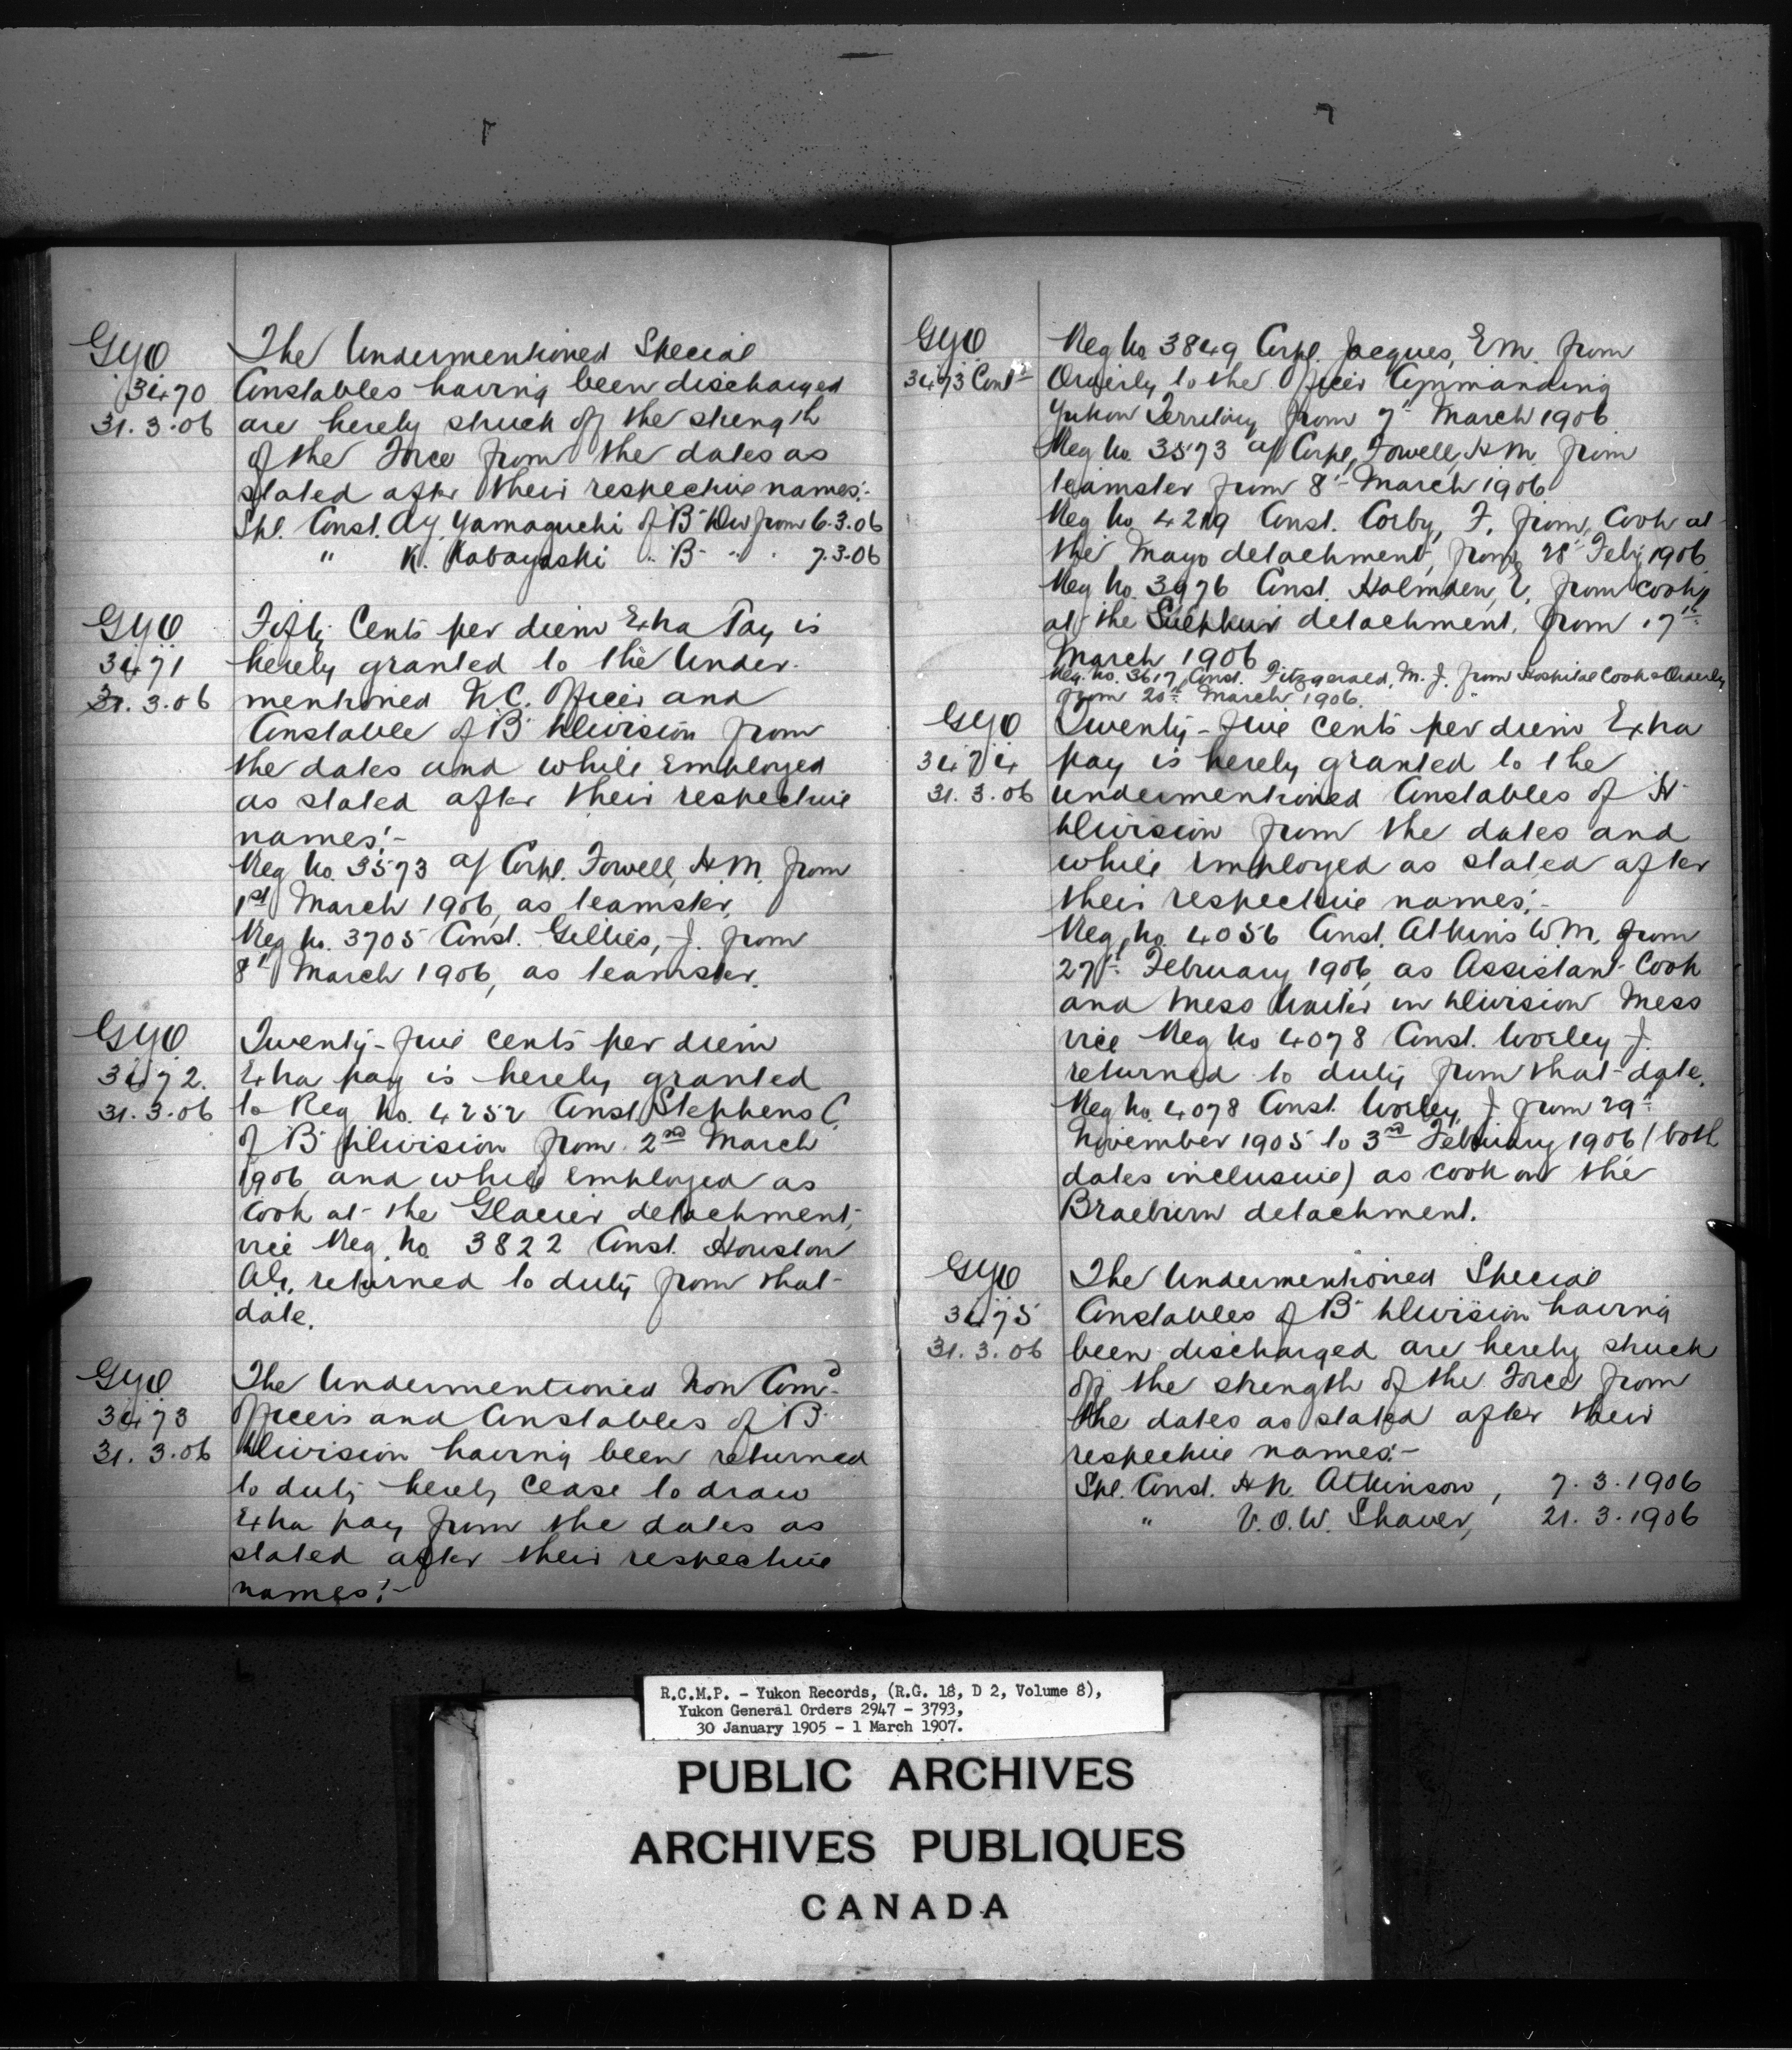 GYO
3470
31.3.06
The Undermentioned Special
Constables having been discharged
are hereby struck off the strength
of the Force from the dates as
stated after their respective names:-
Spl. Const. Yamaguchi of "B" Div from 6.3.06
" K. Kabayashi " B " " 7.3.06
GYO
3471
31.3.06
Fifty Cents per diem Extra Pay is
hereby granted to the Under-
mentioned N.C. Officer and
Constable of "B" Division from
the dates and while Employed
as stated after their respective
names:-
Reg No. 3573 a/ Corpl. Fowell, H.M. from
1st March 1906, as teamster,
Reg No. 3705 Const. Gillies, J. from
8th March 1906, as teamster.
GYO
3472.
31.3.06
Twenty-five cents per diem
Extra pay is hereby granted
to Reg No. 4252 Const. Stephens C.
of "B" Division from 2nd March
1906 and while Employed as
Cook at the Glacier detachment,
vice Reg. No 3822 Const. Houston
returned to duty from that
date.
GYO
3473
31.3.06
The Undermentioned Non Comd.
Officers and Constables of "B"
Division having been returned
to duty hereby cease to draw
Extra pay from the dates as
stated after their respective
names:-
GYO
3473 Cont
Reg No 3849 Corpl. Jacques, E.M. from
Orderly to the Officer Commanding
Yukon Territory from 7th March 1906
Reg No. 3573 a/ Corpl. Fowell, H.M. from
teamster from 8th March 1906
Reg No. 4219 Const. Corby, F. from Cook at
the Mayo detachment, from 28th Feby 1906
Reg No. 3976 Const. Holmden, E. from cook
at the Sulphur detachment, from 17th
March 1906
Reg. No. 3617, Const. Fitzgerald, M.J. from Hospital Cook & Orderly
from 20th March 1906.
GYO
3474
31.3.06
Twenty-five cents per diem Extra
pay is hereby granted to the
undermentioned Constables of "H"
Division from the dates and
while employed as stated after
their respective names:-
Reg. No. 4056 Const. Atkins W.M. from
27th February 1906, as Assistant Cook
and Mess Waiter in Division Mess
vice Reg No 4078 Const. Worley J.
returned to duty from that date.
Reg No. 4078 Const. Worley, J from 29th
November 1905 to 3rd February 1906 (both
dates inclusive) as cook on the
Braeburn detachment.
GYO
3475
31.3.06
The Undermentioned Special
Constables of "B" Division having
been discharged are hereby struck
off the strength of the Force from
the dates as stated after their
respective names:-
Spl. Const. H.N. Atkinson, 7.3.1906
" V.O.W. Shaver, 21.3.1906
R.C.M.P. - Yukon Records, (R.G. 18, D 2, Volume 8),
Yukon General Orders 2947 - 3793,
30 January 1905 - 1 March 1907.
PUBLIC ARCHIVES
ARCHIVES PUBLIQUES
CANADA